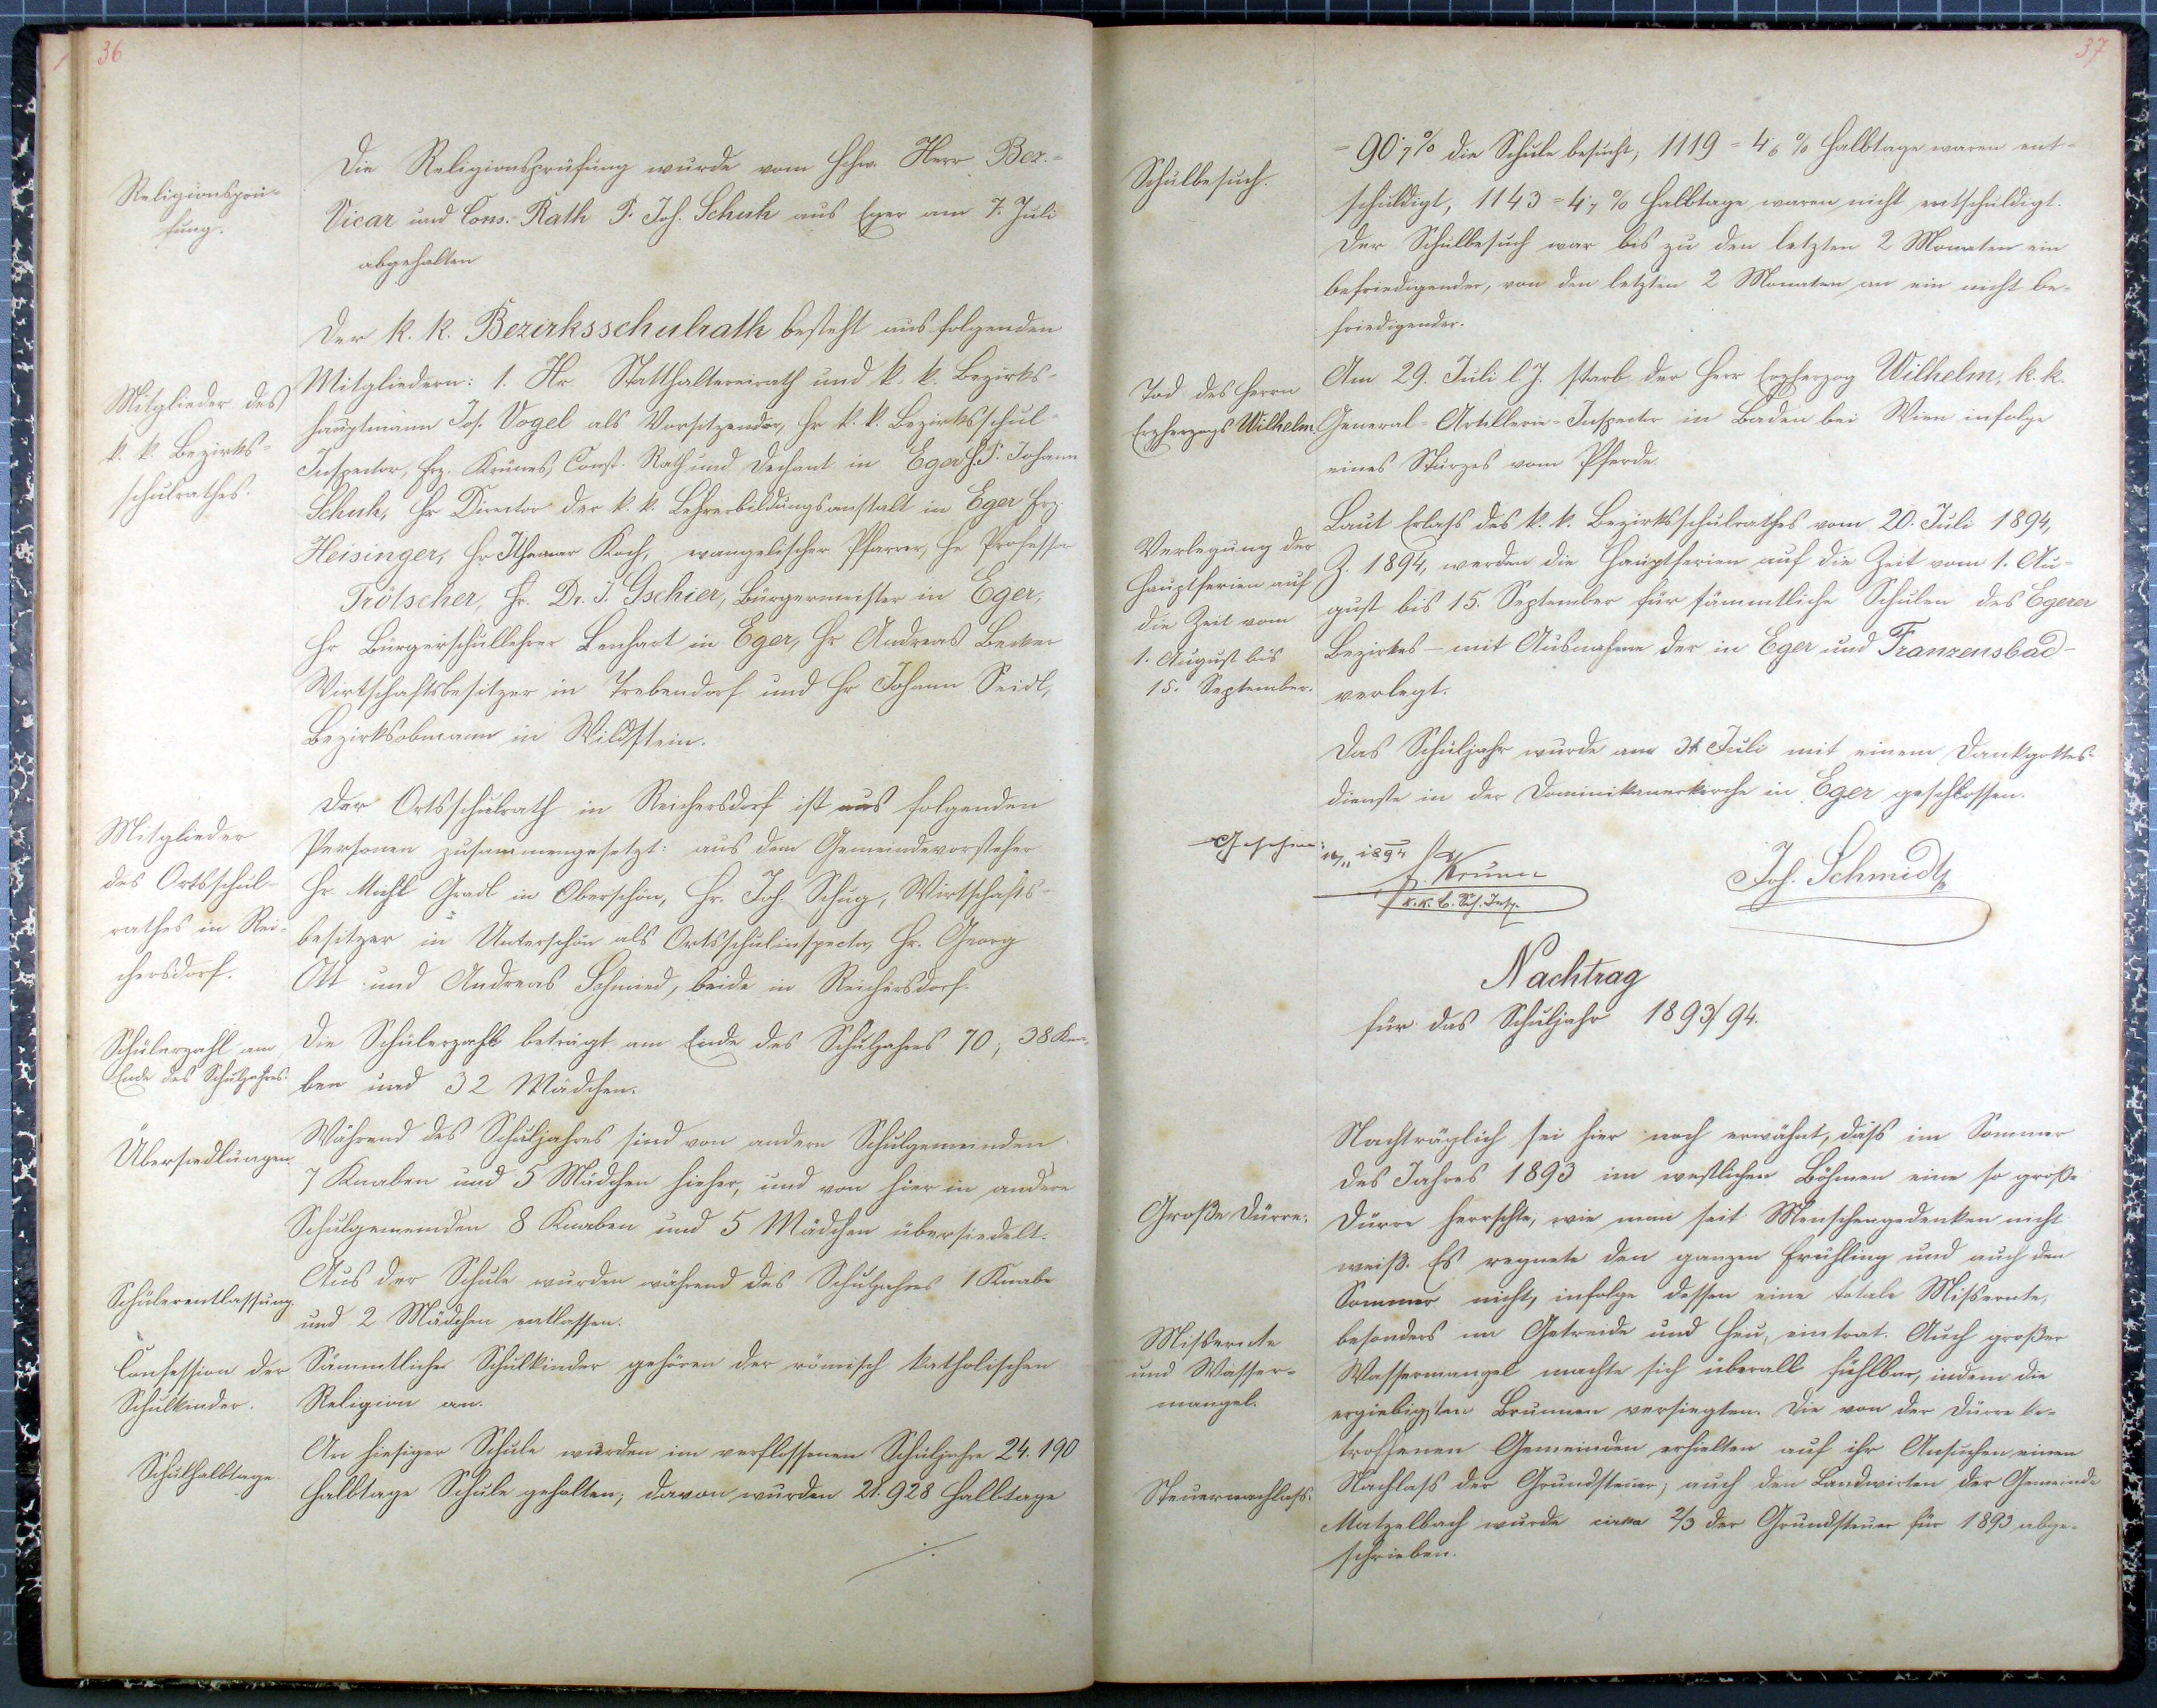 36
Religionsprü-
fung.
Die Religionsprüfung wurde vom Hchw. Herr Bez.-
Vicar und Cons.-Rath P. Joh. Schuh aus Eger am 7. Juli
abgehalten
Mitglieder des
k. k. Bezirks-
schulrathes.
Der k. k. Bezirksschulrath besteht aus folgenden
Mitgliedern: 1. Hr Statthaltereirath und k. k. Bezirks-
hauptmann Jos. Vogel als Vorsitzender, Hr k. k. Bezirksschul-
Inspector, Frz. Krünes, Const. Rath und Dechant in Eger H. P. Johann
Schuh, Hr Director der k. k. Lehrerbildungsanstalt in Eger Frz.
Heisinger, Hr Ithamar Koch, evangelischer Pfarrer, Hr Professor
Trötscher, Hr. Dr. J. Gschier, Bürgermeister in Eger,
Hr Bürgerschullehrer Lenhart in Eger, Hr Andreas Becker
Wirtschaftsbesitzer in Trebendorf und Hr Johann Seidl,
Bezirksobmann in Wildstein.
Mitglieder
des Ortsschul-
rathes in Rei-
chersdorf.
Der Ortsschulrath in Reichersdorf ist aus folgenden
Personen zusammengesetzt: aus dem Gemeindevorsteher
Hr. Michl Gradl in Oberschön, Hr. Joh. Schug, Wirtschafts-
besitzer in Unterschön als Ortsschulinspector, Hr. Georg
Ott und Andreas Schmied, beide in Reichersdorf.
Schülerzahl am
Ende des Schuljahres.
Die Schülerzahl beträgt am Ende des Schuljahres 70, 38 Kna-
ben und 32 Mädchen.
Übersiedlungen.
Während des Schuljahres sind von andern Schulgemeinden
7 Knaben und 5 Mädchen hieher, und von hier in andere
Schulgemeinden 8 Knaben und 5 Mädchen übersiedelt.
Schülerentlassung.
Aus der Schule wurden während des Schuljahres 1 Knabe
und 2 Mädchen entlassen.
Confession der
Schulkinder.
Sämmtliche Schulkinder gehören der römisch katholischen
Religion an.
Schulhalbtage.
An hiesiger Schule wurden im verflossenen Schuljahre 24.190
Halbtage Schule gehalten; davon wurden 21.928 Halbtage
./.
37
Schulbesuch.
= 90·7% die Schule besucht, 1119 = 4·6 % Halbtage waren ent-
schuldigt, 1143 = 4·7 % Halbtage waren nicht entschuldigt.
Der Schulbesuch war bis zu den letzten 2 Monaten ein
befriedigender, von den letzten 2 Monaten an ein nicht be-
friedigender.
Tod des Herrn
Erzherzogs Wilhelm.
Am 29. Juli l. J. starb der Herr Erzherzog Wilhelm, k. k.
General-Artillerie-Inspector in Baden bei Wien infolge
eines Sturzes vom Pferde.
Verlegung der
Hauptferien auf
die Zeit vom
1. August bis
15. September.
Laut Erlass des k. k. Bezirksschulrathes vom 20. Juli 1894,
Z. 1894, werden die Hauptferien auf die Zeit vom 1. Au-
gust bis 15. September für sämmtliche Schulen des Egerer
Bezirkes – mit Ausnahme der in Eger und Franzensbad –
verlegt.
Das Schuljahr wurde am 31. Juli mit einem Dankgottes-
dienste in der Dominikanerkirche in Eger geschlossen.
Gesehen: 1894
Krünes
k. k. B. Sch. Insp.
Joh. Schmidt
Nachtrag
für das Schuljahr 1893/94.
Große Dürre.
Nachträglich sei hier noch erwähnt, dass im Sommer
des Jahres 1893 im westlichen Böhmen eine so große
Dürre herrschte, wie man seit Menschengedenken nicht
weiß. Es regnete den ganzen Frühling und auch den
Sommer nicht, infolge dessen eine totale Missernte,
Missernte
und Wasser-
mangel.
besonders im Getreide und Heu, eintrat. Auch großer
Wassermangel machte sich überall fühlbar, indem die
ergiebigsten Brunnen versiegten. Die von der Dürre be-
troffenen Gemeinden erhielten auf ihr Ansuchen einen
Steuernachlass.
Nachlass der Grundsteuer; auch den Landwirten der Gemeinde
Matzelbach wurde cirka 2/3 der Grundsteuer für 1893 abge-
schrieben.